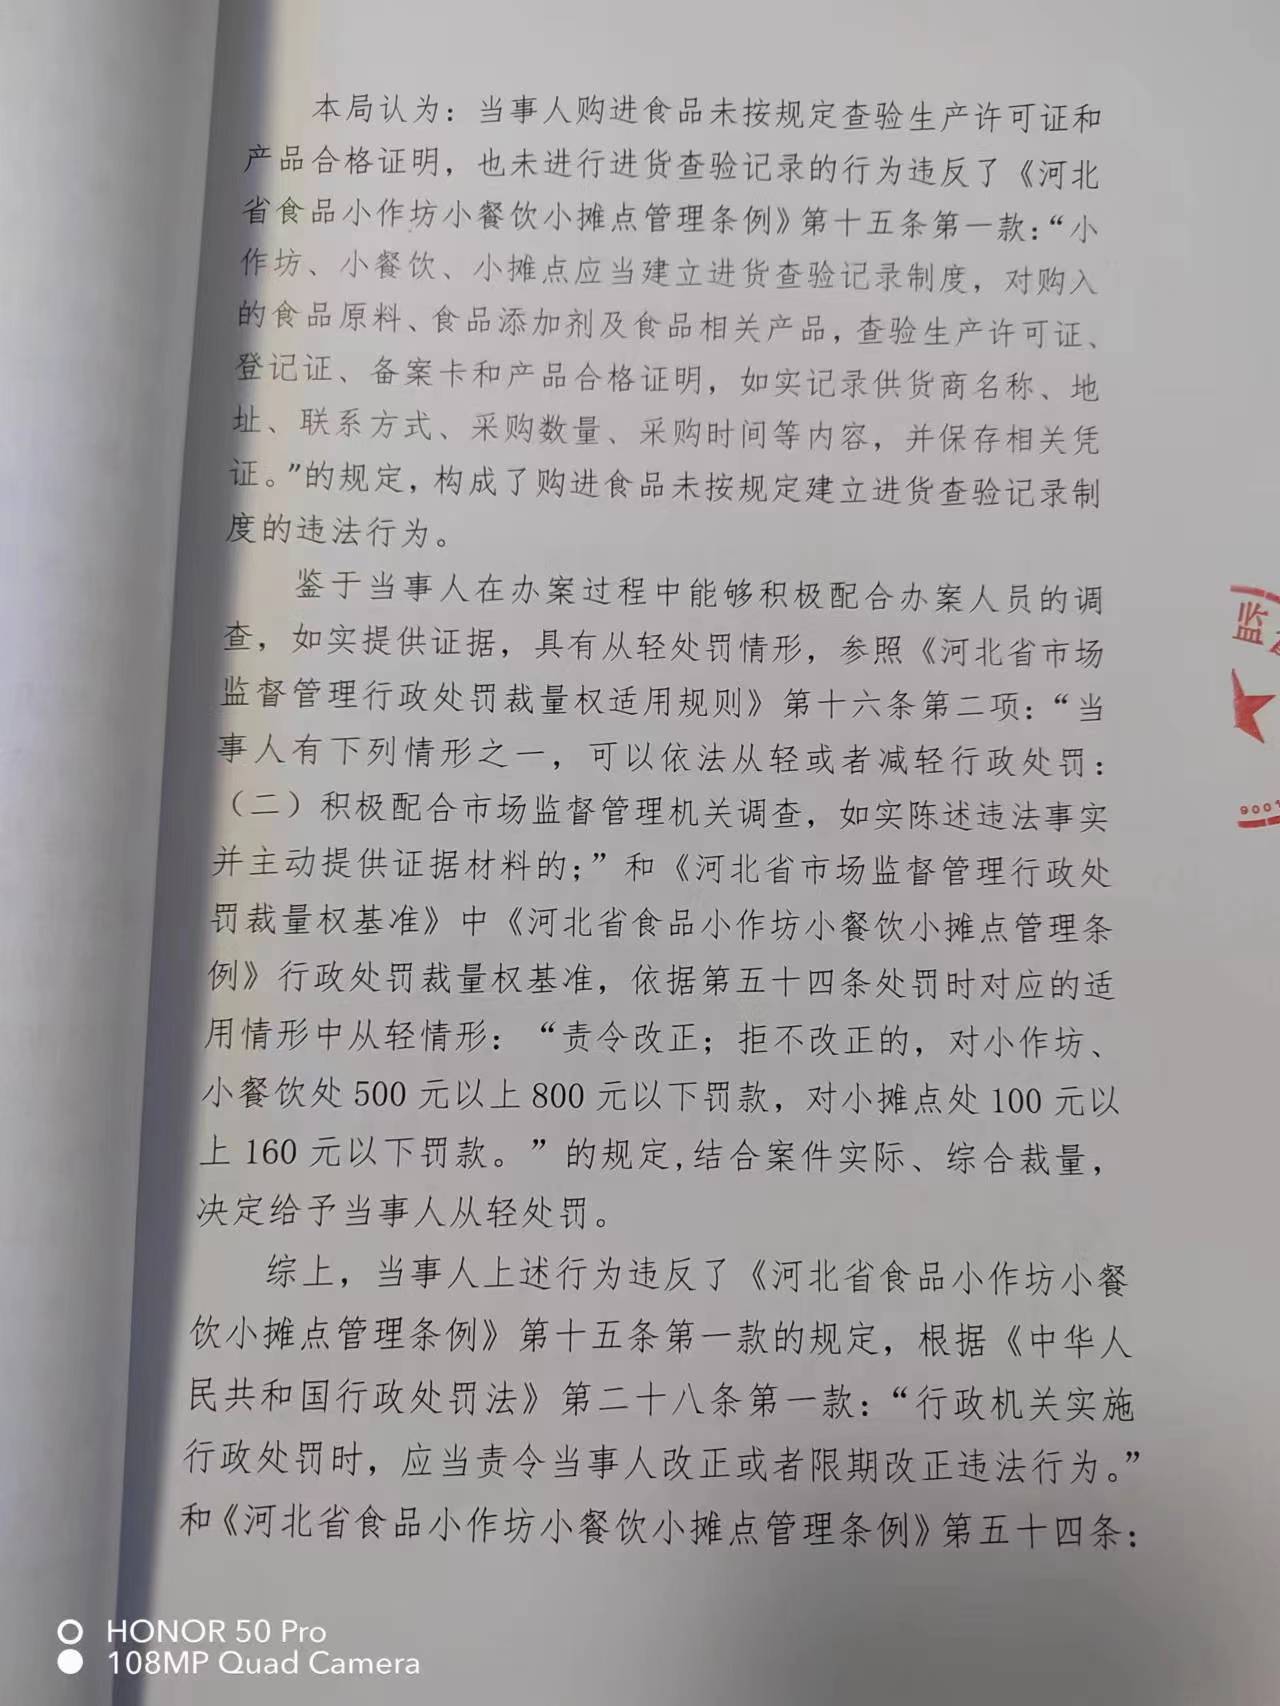 本局认为：当事人购进食品未按规定查验生产许可证和
产品合格证明，也未进行进货查验记录的行为违反了《河北
省食品小作坊小餐饮小摊点管理条例》第十五条第一款：“小
作坊、小餐饮、小摊点应当建立进货查验记录制度，对购入
的食品原料、食品添加剂及食品相关产品，查验生产许可证、
登记证、备案卡和产品合格证明，如实记录供货商名称、地
址、联系方式、采购数量、采购时间等内容，并保存相关凭
证。”的规定，构成了购进食品未按规定建立进货查验记录制
度的违法行为。
鉴于当事人在办案过程中能够积极配合办案人员的调
查，如实提供证据，具有从轻处罚情形，参照《河北省市场
监督管理行政处罚裁量权适用规则》第十六条第二项：“当
事人有下列情形之一，可以依法从轻或者减轻行政处罚：
（二）积极配合市场监督管理机关调查，如实陈述违法事实
并主动提供证据材料的；”和《河北省市场监督管理行政处
罚裁量权基准》中《河北省食品小作坊小餐饮小摊点管理条
例》行政处罚裁量权基准，依据第五十四条处罚时对应的适
用情形中从轻情形：“责令改正；拒不改正的，对小作坊、
小餐饮处 500 元以上 800 元以下罚款，对小摊点处 100 元以
上 160 元以下罚款。”的规定,结合案件实际、综合裁量，
决定给予当事人从轻处罚。
综上，当事人上述行为违反了《河北省食品小作坊小餐
饮小摊点管理条例》第十五条第一款的规定，根据《中华人
民共和国行政处罚法》第二十八条第一款：“行政机关实施
行政处罚时，应当责令当事人改正或者限期改正违法行为。”
和《河北省食品小作坊小餐饮小摊点管理条例》第五十四条：
监
9001
HONOR 50 Pro
108MP Quad Camera